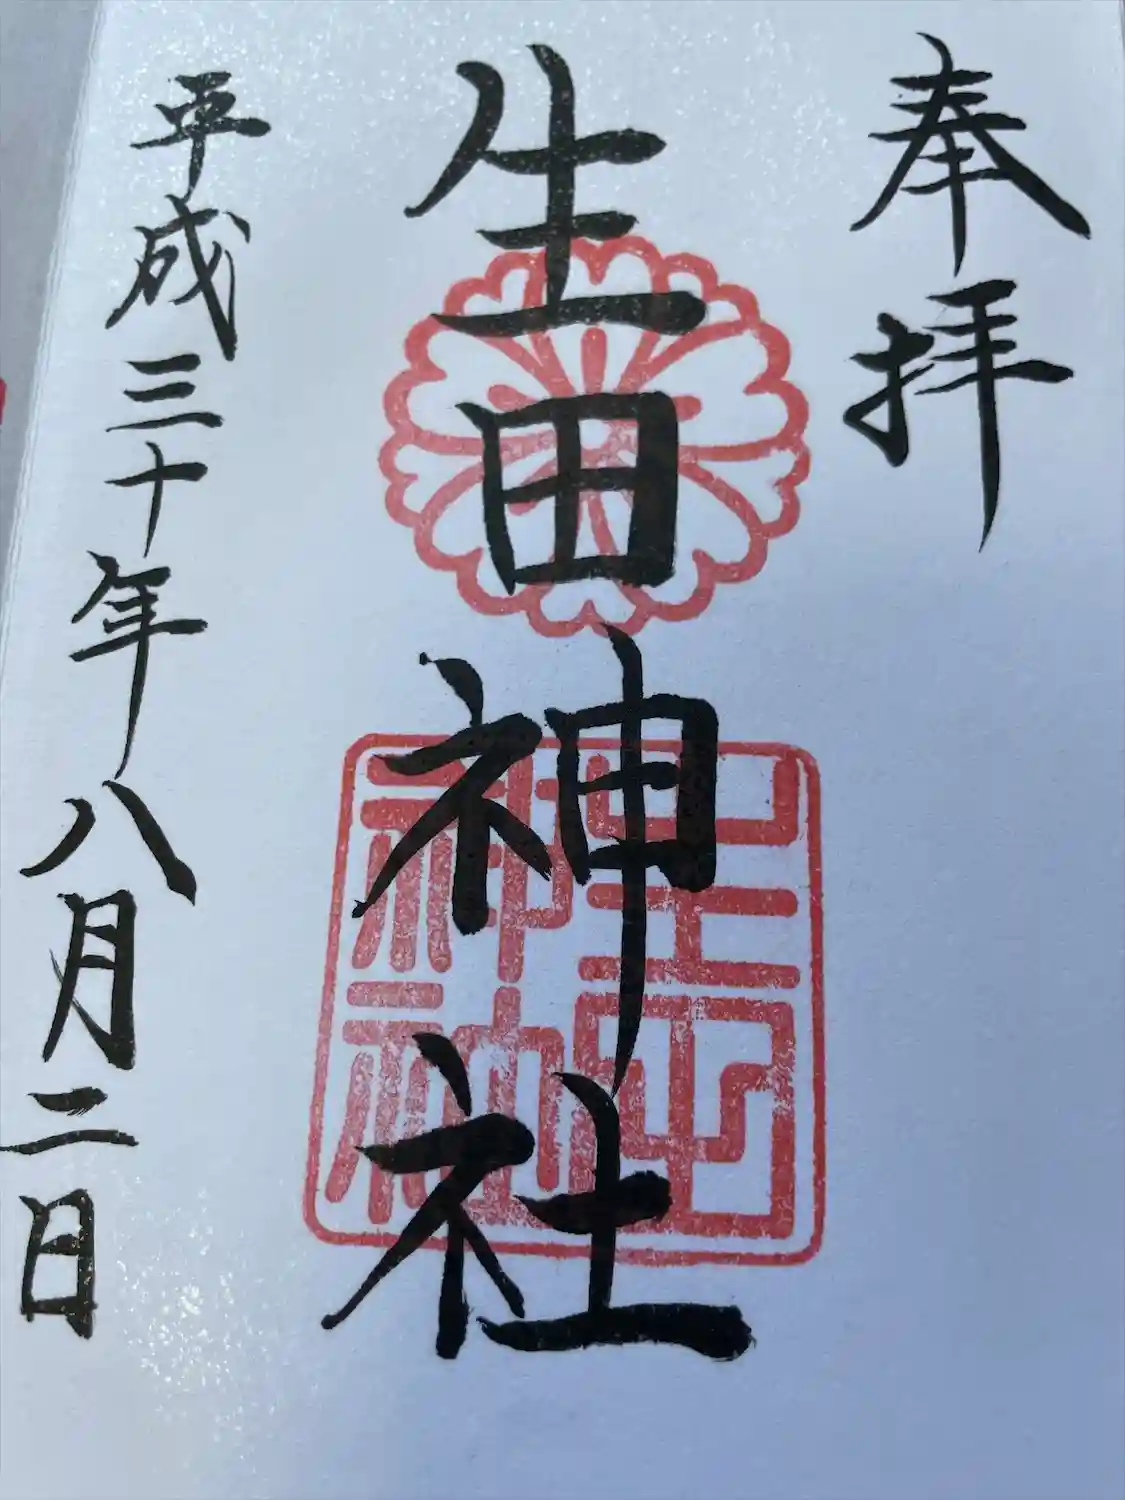 奉拝
生田神社
平成三十年八月二日
生田
神社